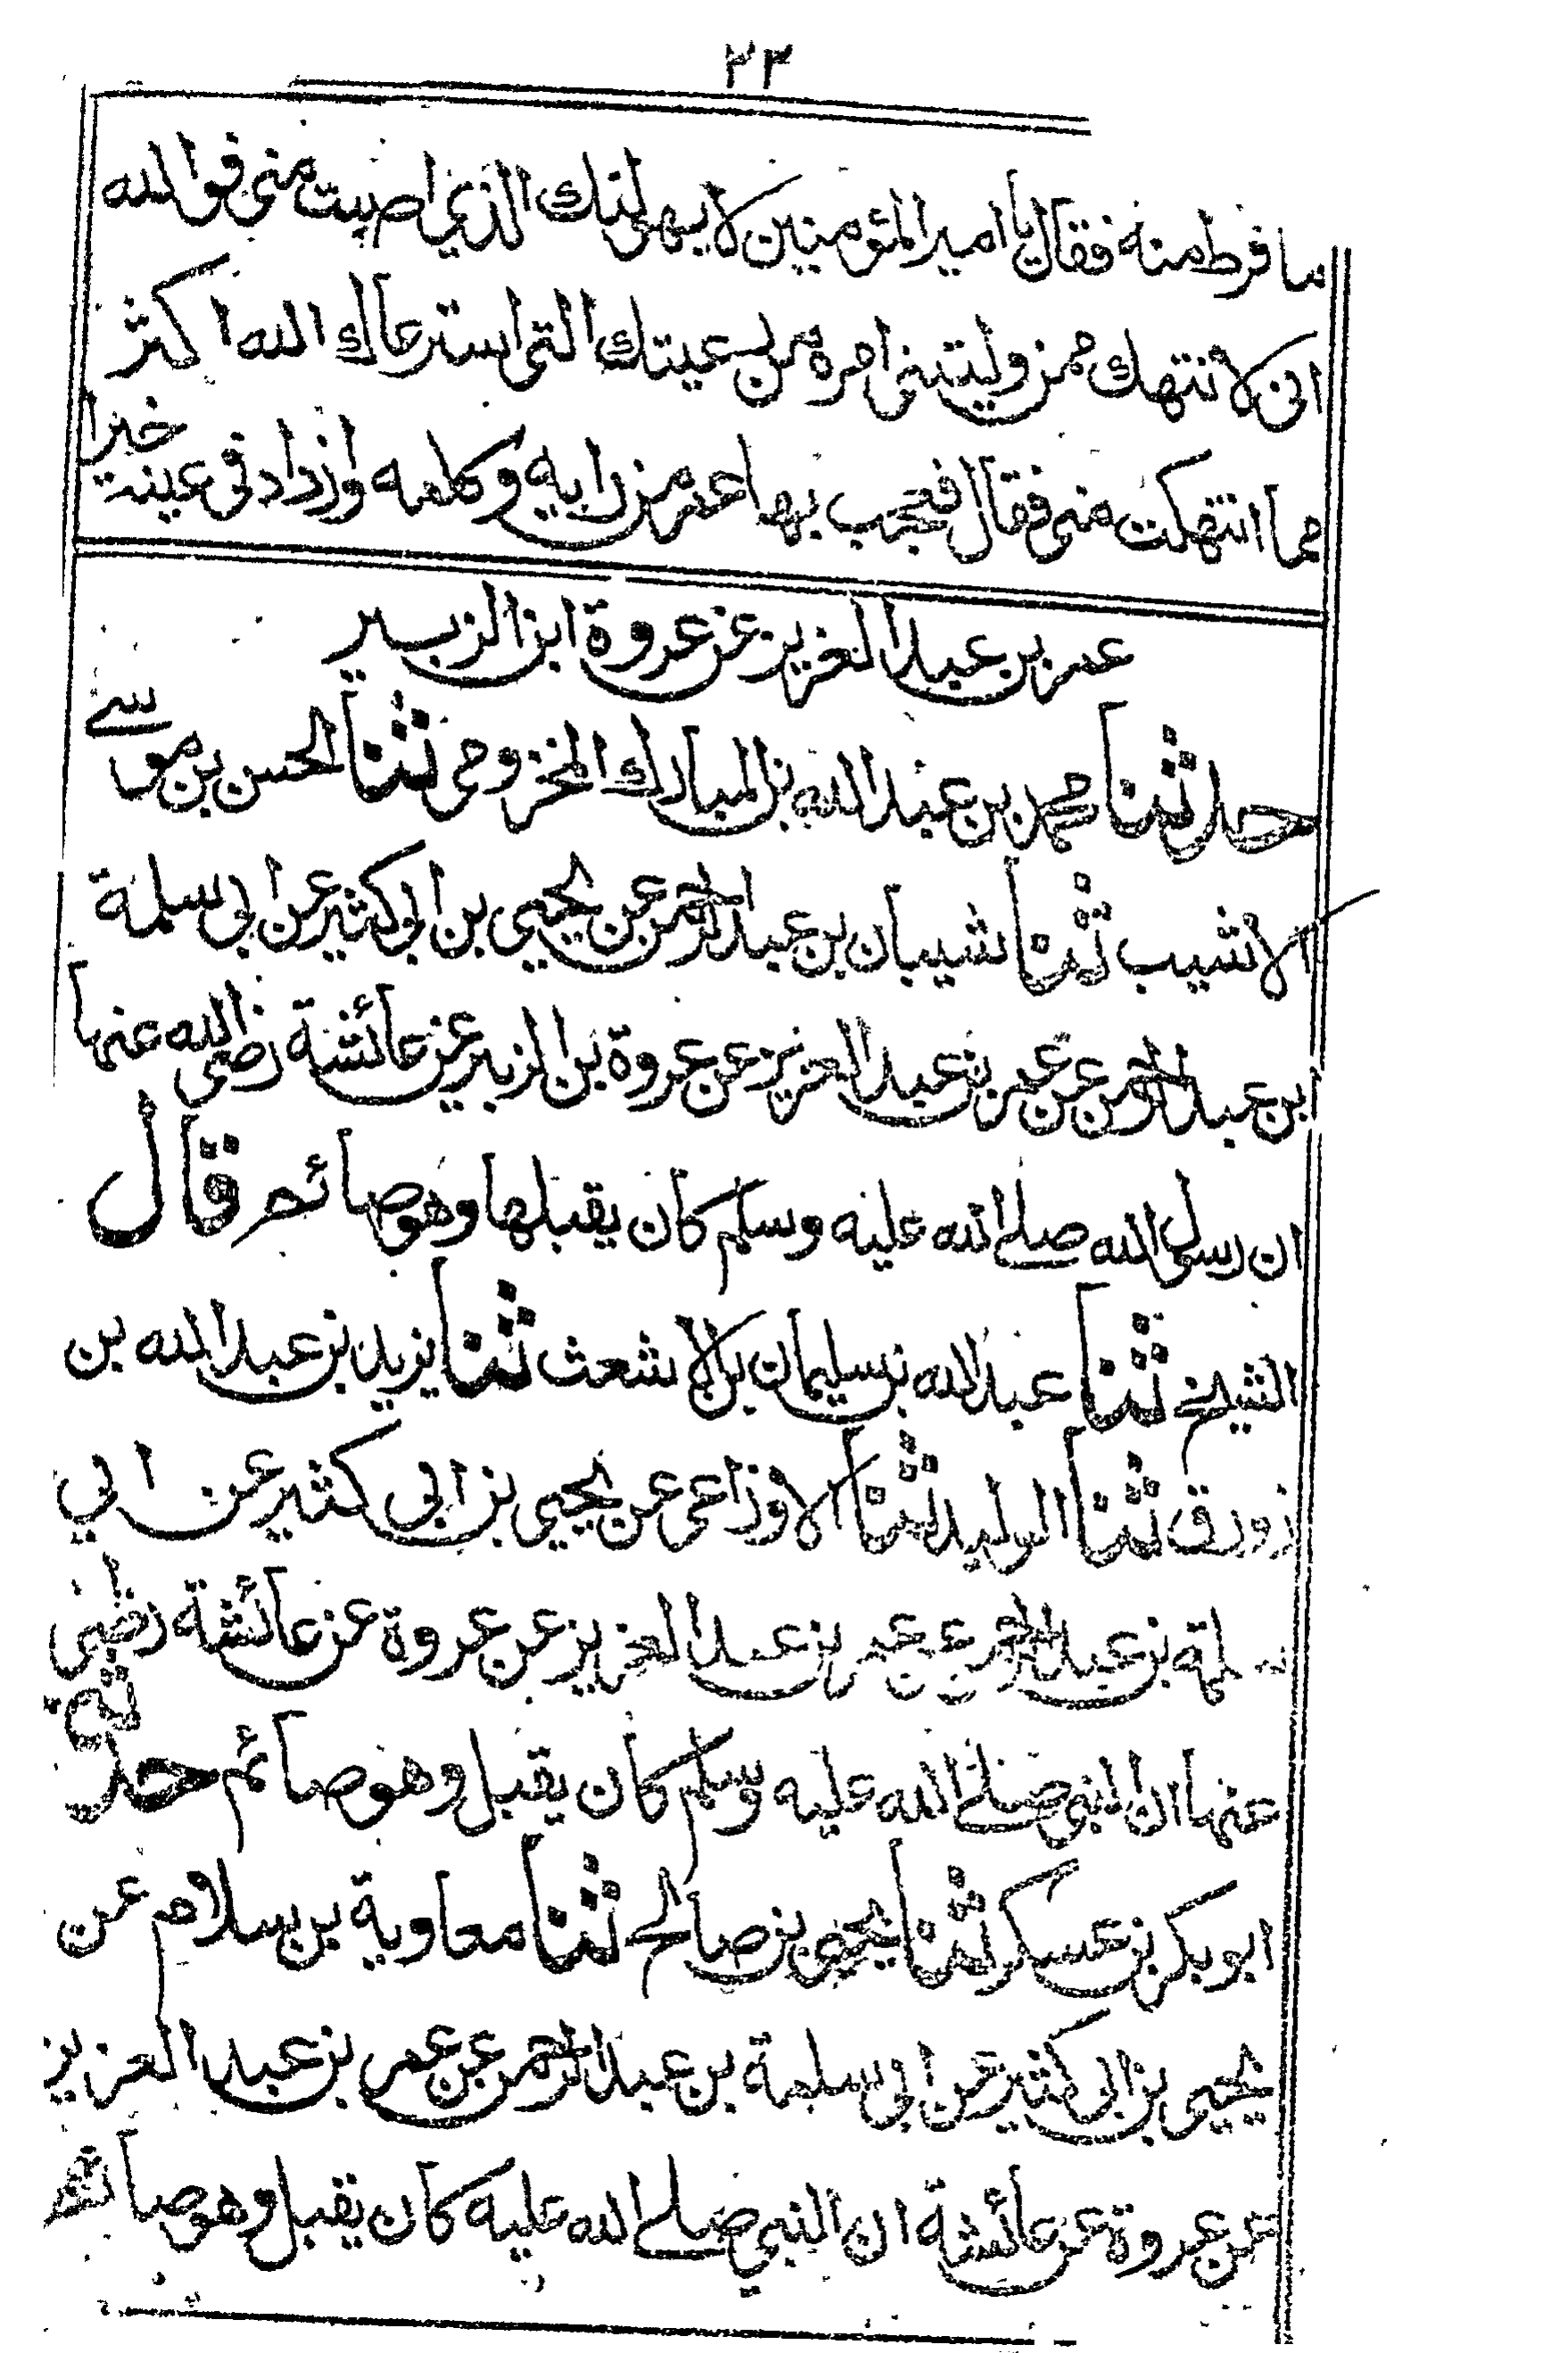 ٢٣
ما فرط منه فقال يا امير المؤمنين لا يهولنك الذي اصبت منى فوالله
انى لا نتهك ممن وليتنى امره من رعيتك التى استرعاك الله اكثر
مما انتهكت منى فقال فعجب بها عمر من رايه وكلمه وازداد فى عينه خيرا
عمر بن عبد العزيز عن عروة ابن الزبير
حدثنا محمد بن عبد الله بن المبارك المخزومى ثنا الحسن بن موسے
الاشيب ثنا شيبان بن عبد الرحمن عن يحيى بن ابى كثير عن ابى سلمة
ابن عبد الرحمن عن عمر بن عبد العزيز عن عروة بن الزبير عن عائشة رضى الله عنها
ان رسول الله صلے الله عليه وسلم كان يقبلها وهو صائم قال
الشيخ ثنا عبد الله بن سليمان بن الاشعث ثنا يزيد بن عبد الله بن
زورق ثنا الوليد ثنا الاوزاعى عن يحيى بن ابى كثير عن ابي
سلمة بن عبد الرحمن عن عمر بن عبد العزيز عن عروة عن عائشة رضى
عنها ان النبى صلے الله عليه وسلم كان يقبل وهو صائم حدثنا
ابو بكر بن عسكر ثنا يحيى بن صالح ثنا معاوية بن سلام عن
يحيى بن ابى كثير عن ابى سلمة بن عبد الرحمن عن عمر بن عبد العزيز
عن عروة عن عائشة ان النبي صلے الله عليه كان يقبل وهو صائم